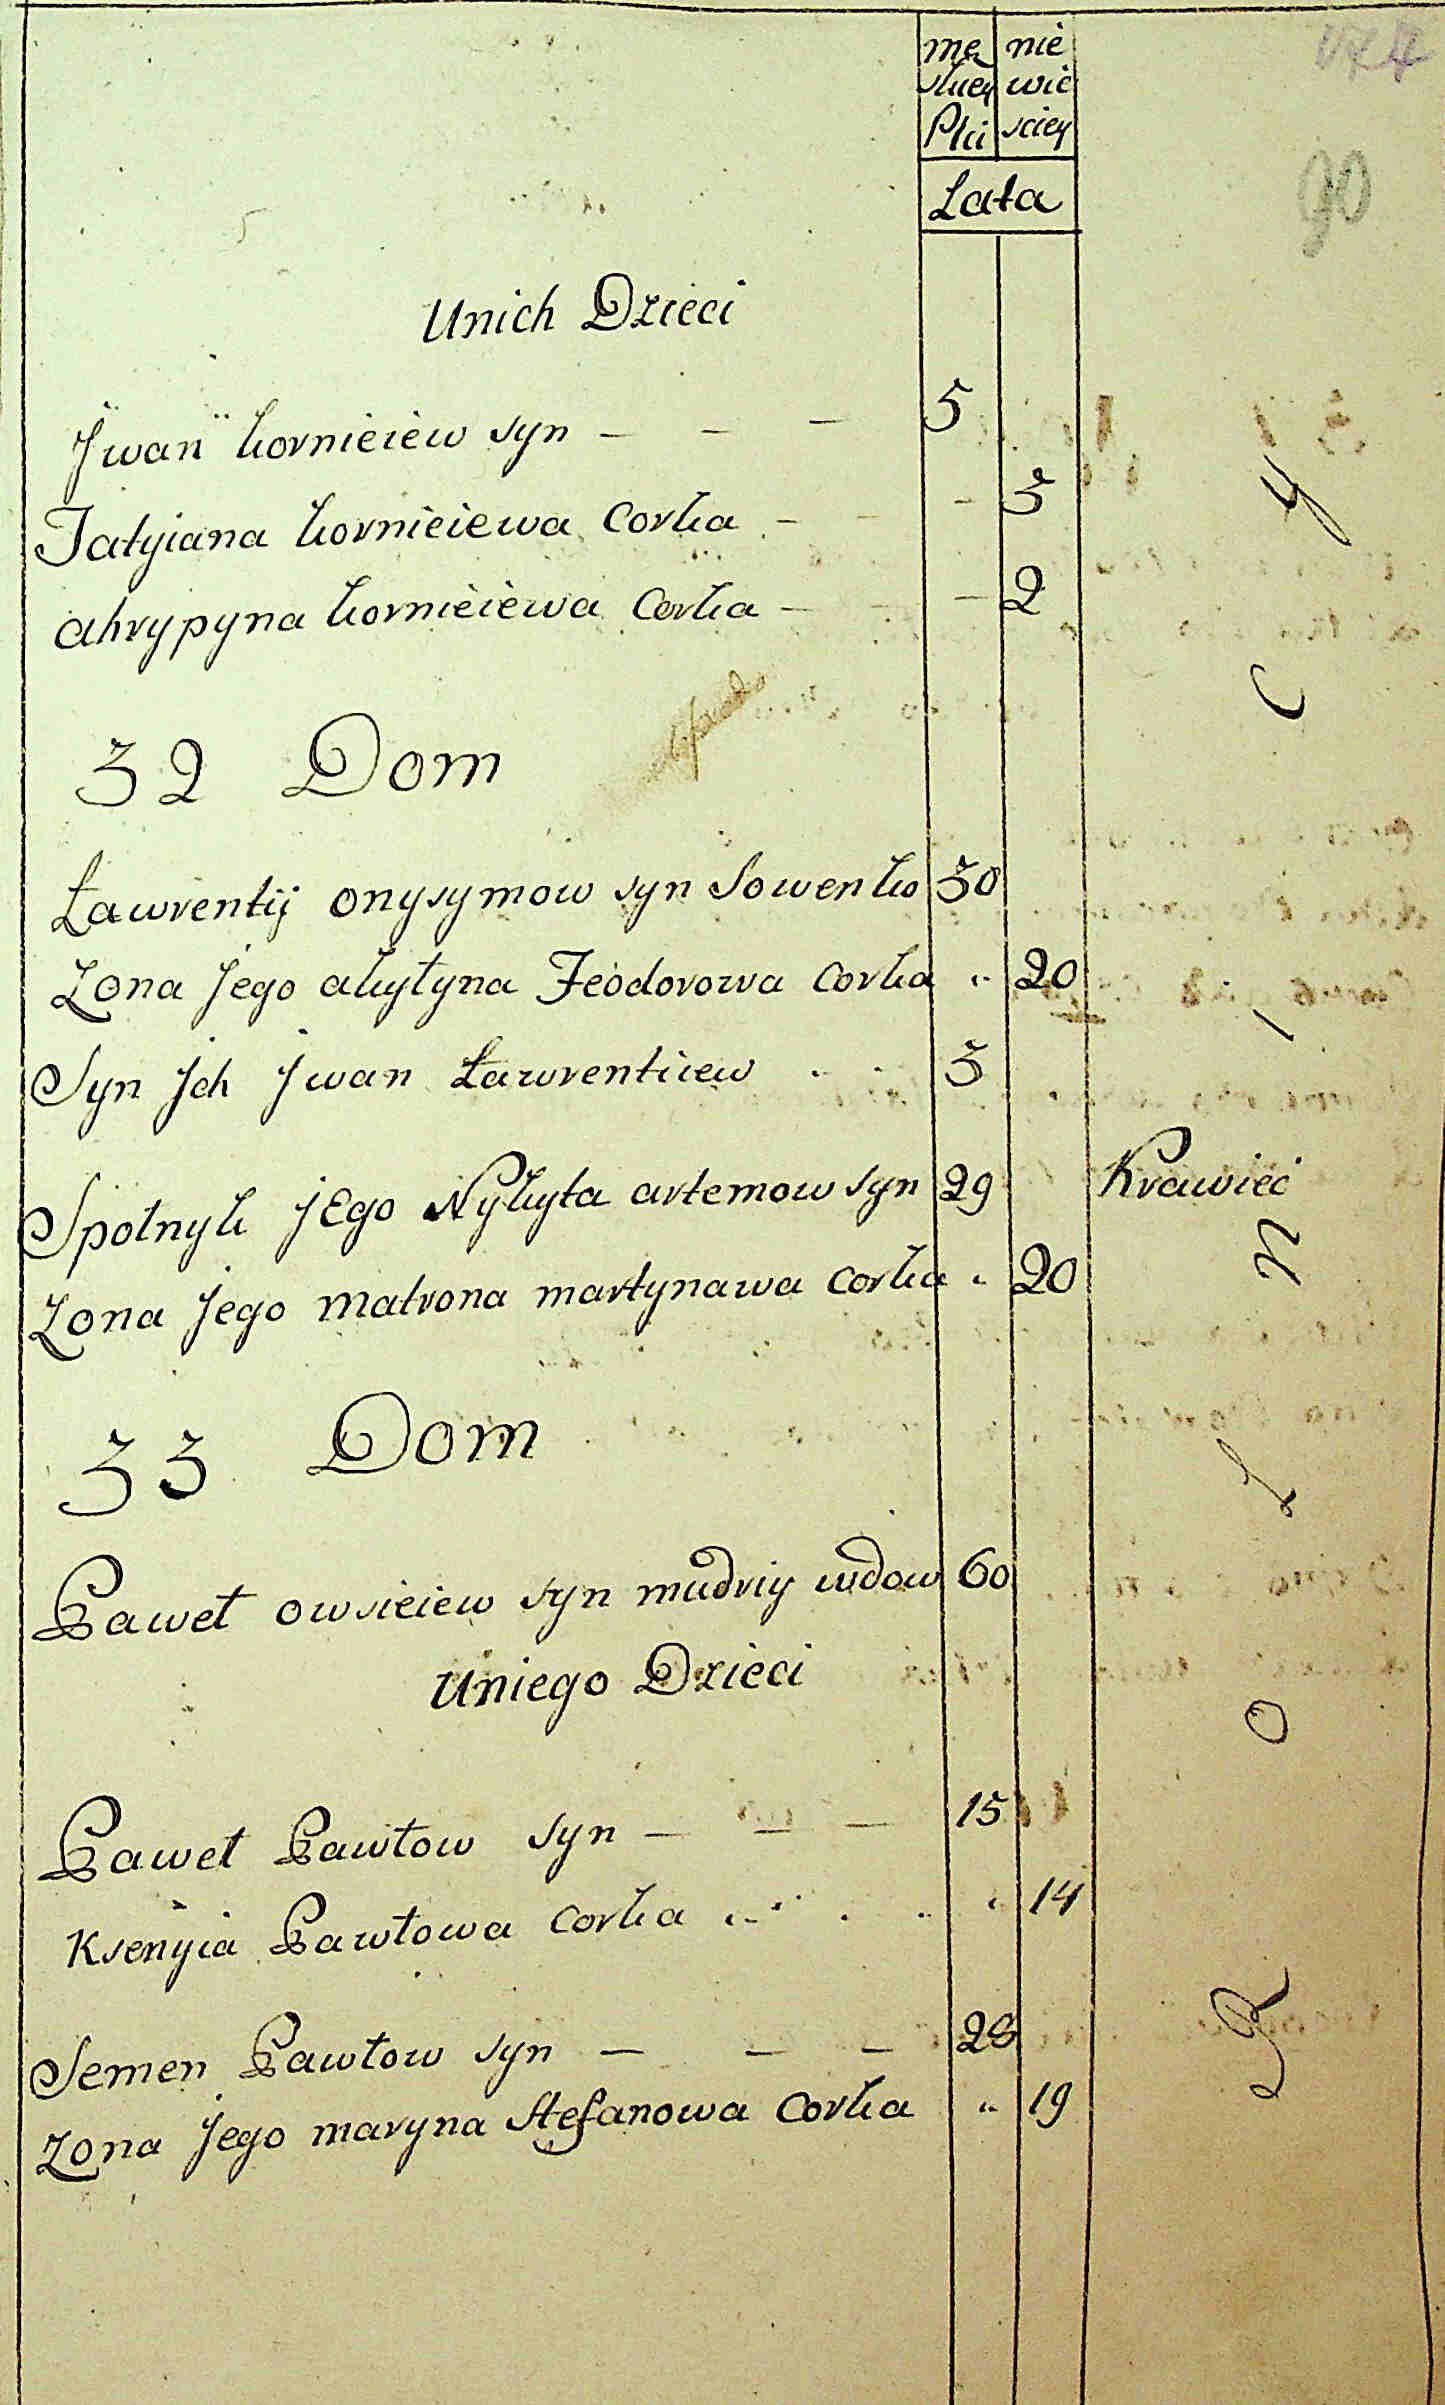 mę nie
skiey wie
Płci sciey
Lata
90
Unich Dzieci
Jwan kornieiew syn — — — 5
Tatyiana kornieiewa Corka - - - 3
ahrypyna kornieiewa Corka - - - 2
32 Dom
Ławrentij onysymow syn Sowenko 30
Zona Jego akyłyna Feodorowa Corka " 20
Syn Jch Jwan Ławrentiiew . . 3
Spolnyk jEgo Nykyta artemow syn 29 Krawiec
Zona Jego matrona martynawa Corka " 20
33 Dom
Paweł owsieiew syn mudriy wdow 60
Uniego Dzieci
Paweł Pawłow syn — — — 15
Ksenyia Pawłowa Corka . . . " 14
Semen Pawłow syn — — — 28
Zona Jego maryna Stefanowa Corka " 19
R o l n i c y